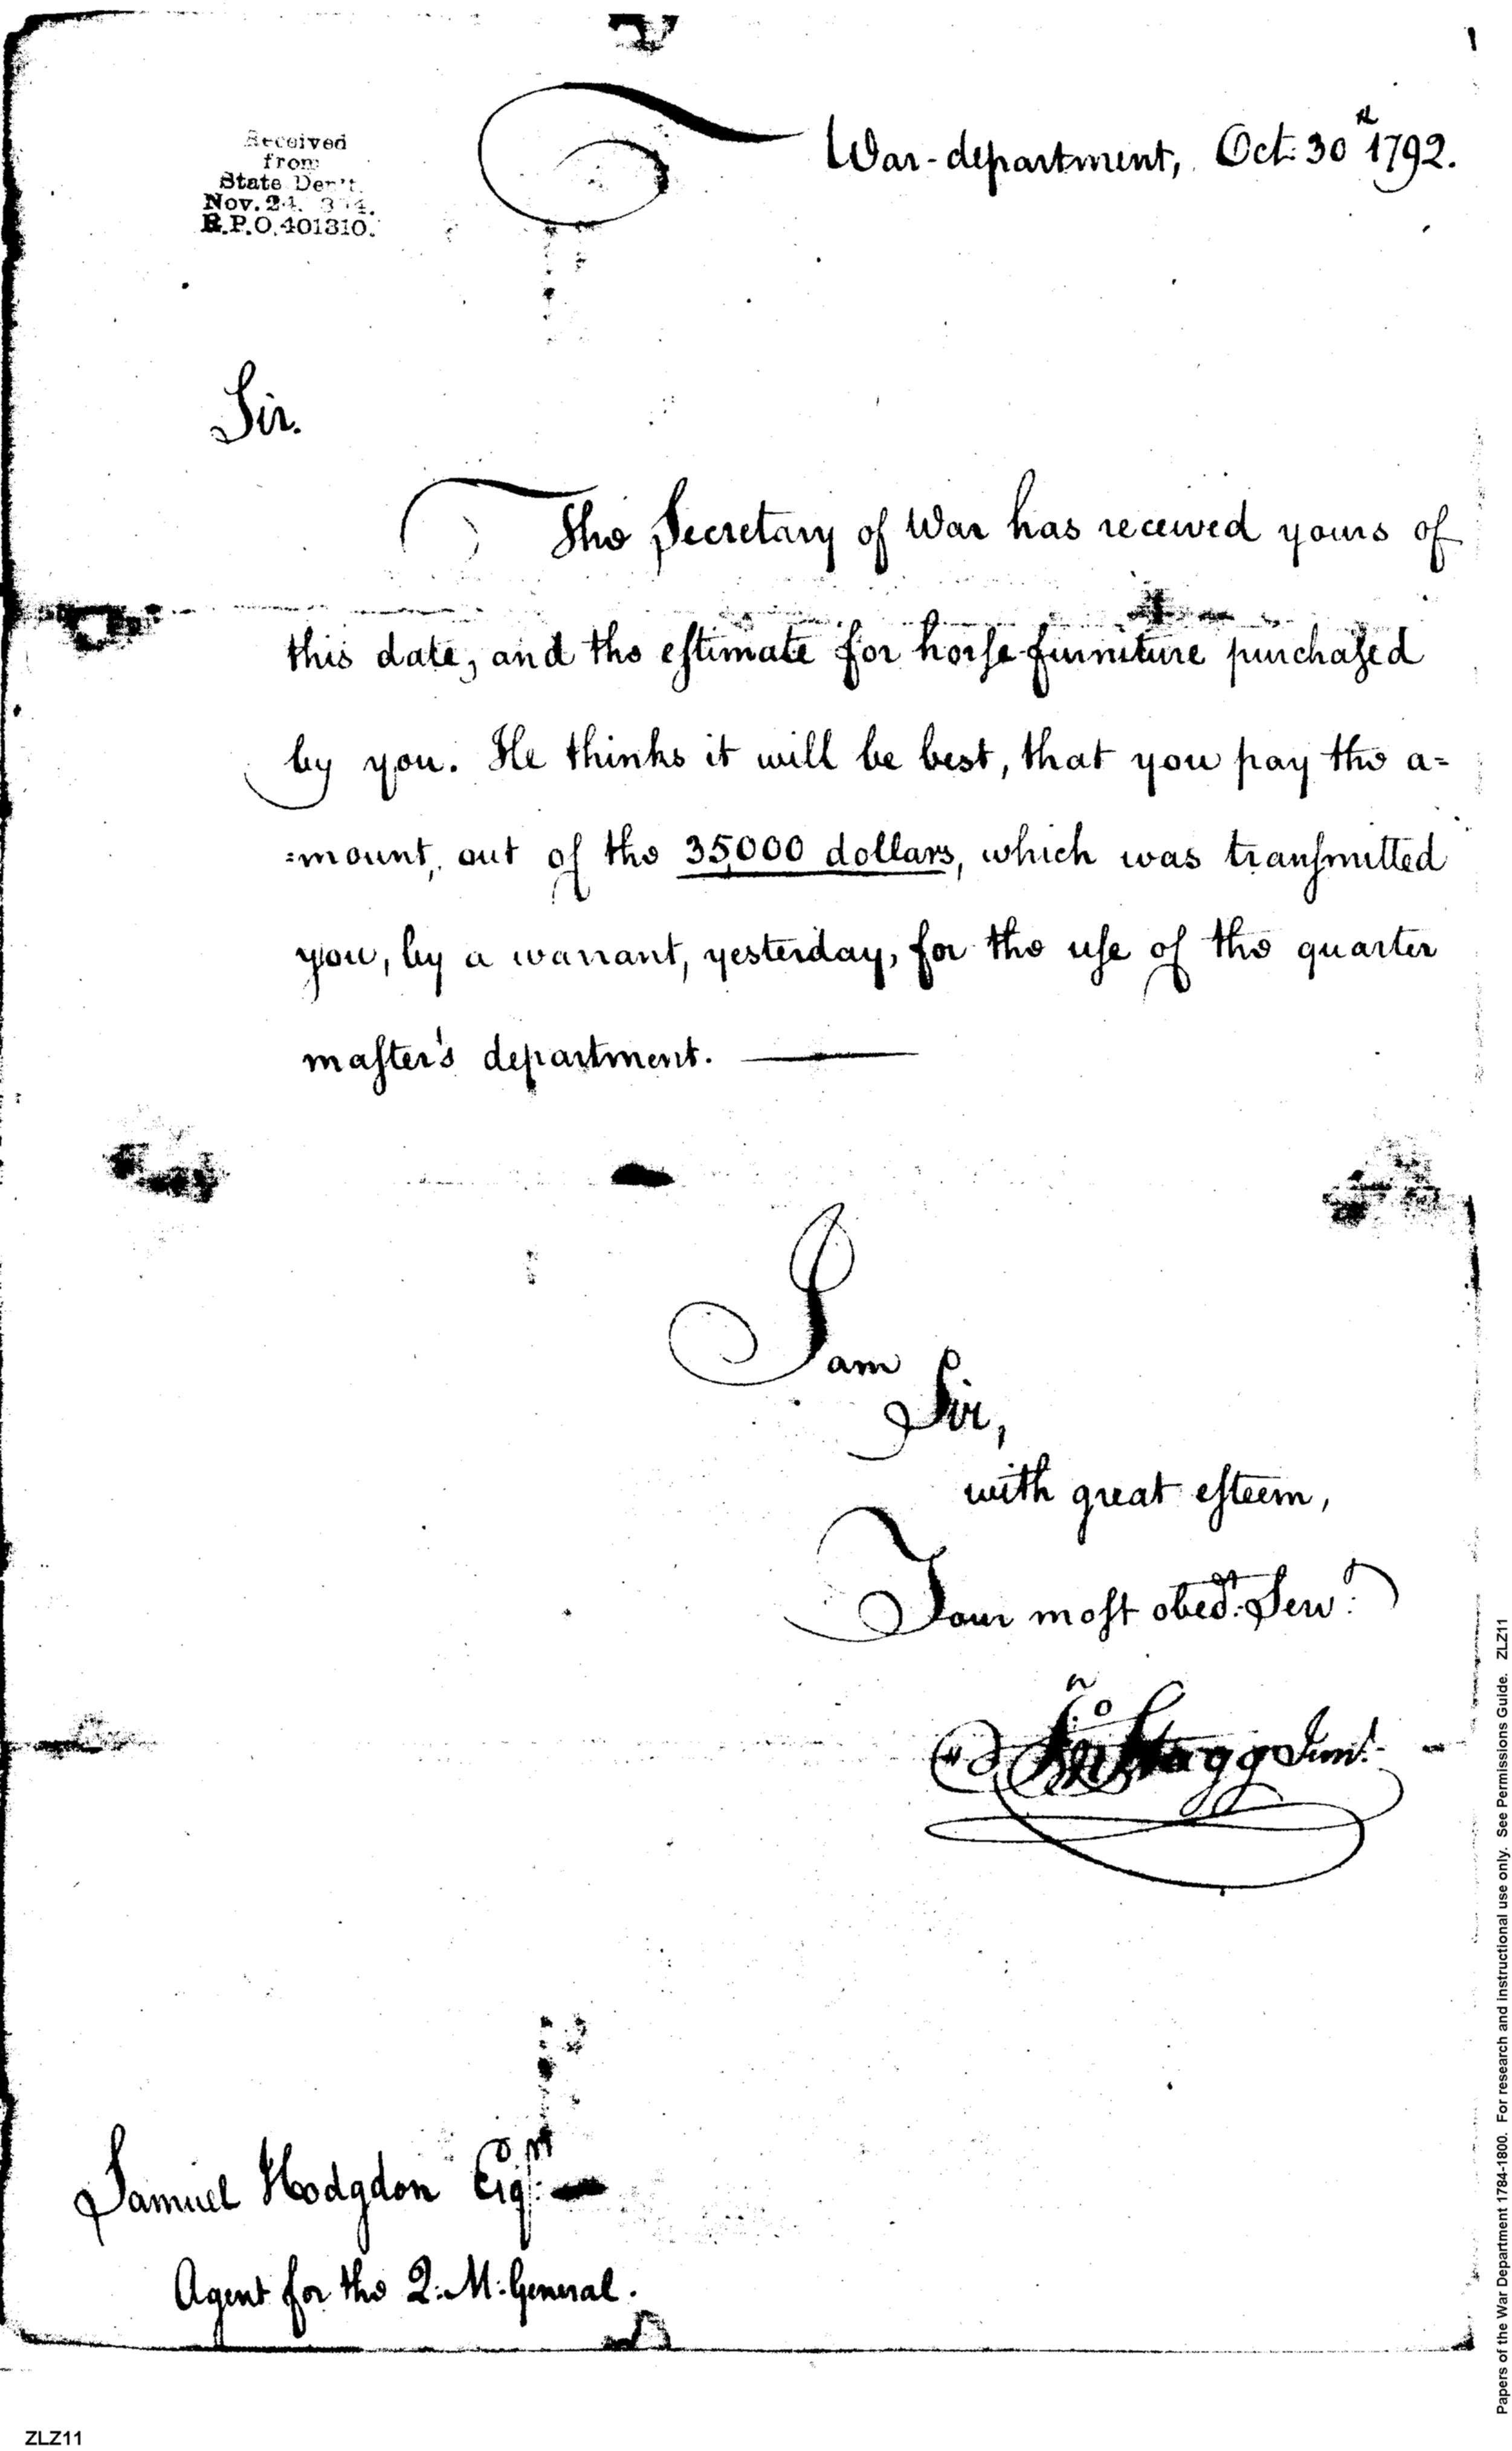 Received
from
State Dep't.
Nov. 24.
R.P.O. 401310.
War-department, Oct: 30th 1792.
Sir.
The Secretary of War has received yours of
this date, and the eſtimate for horſe-furniture purchaſed
by you. He thinks it will be best, that you pay the a=
=mount, out of the 35,000 dollars, which was tranſmitted
you, by a warrant, yesterday, for the uſe of the quarter
maſter's department.
I am
Sir,
with great eſteem,
Your moſt obedt. Servt.
Jno Stagg Junr.
Samuel Hodgdon Esqr.
Agent for the Q: M: General.
ZLZ11
Papers of the War Department 1784-1800. For research and instructional use only. See Permissions Guide. ZLZ11